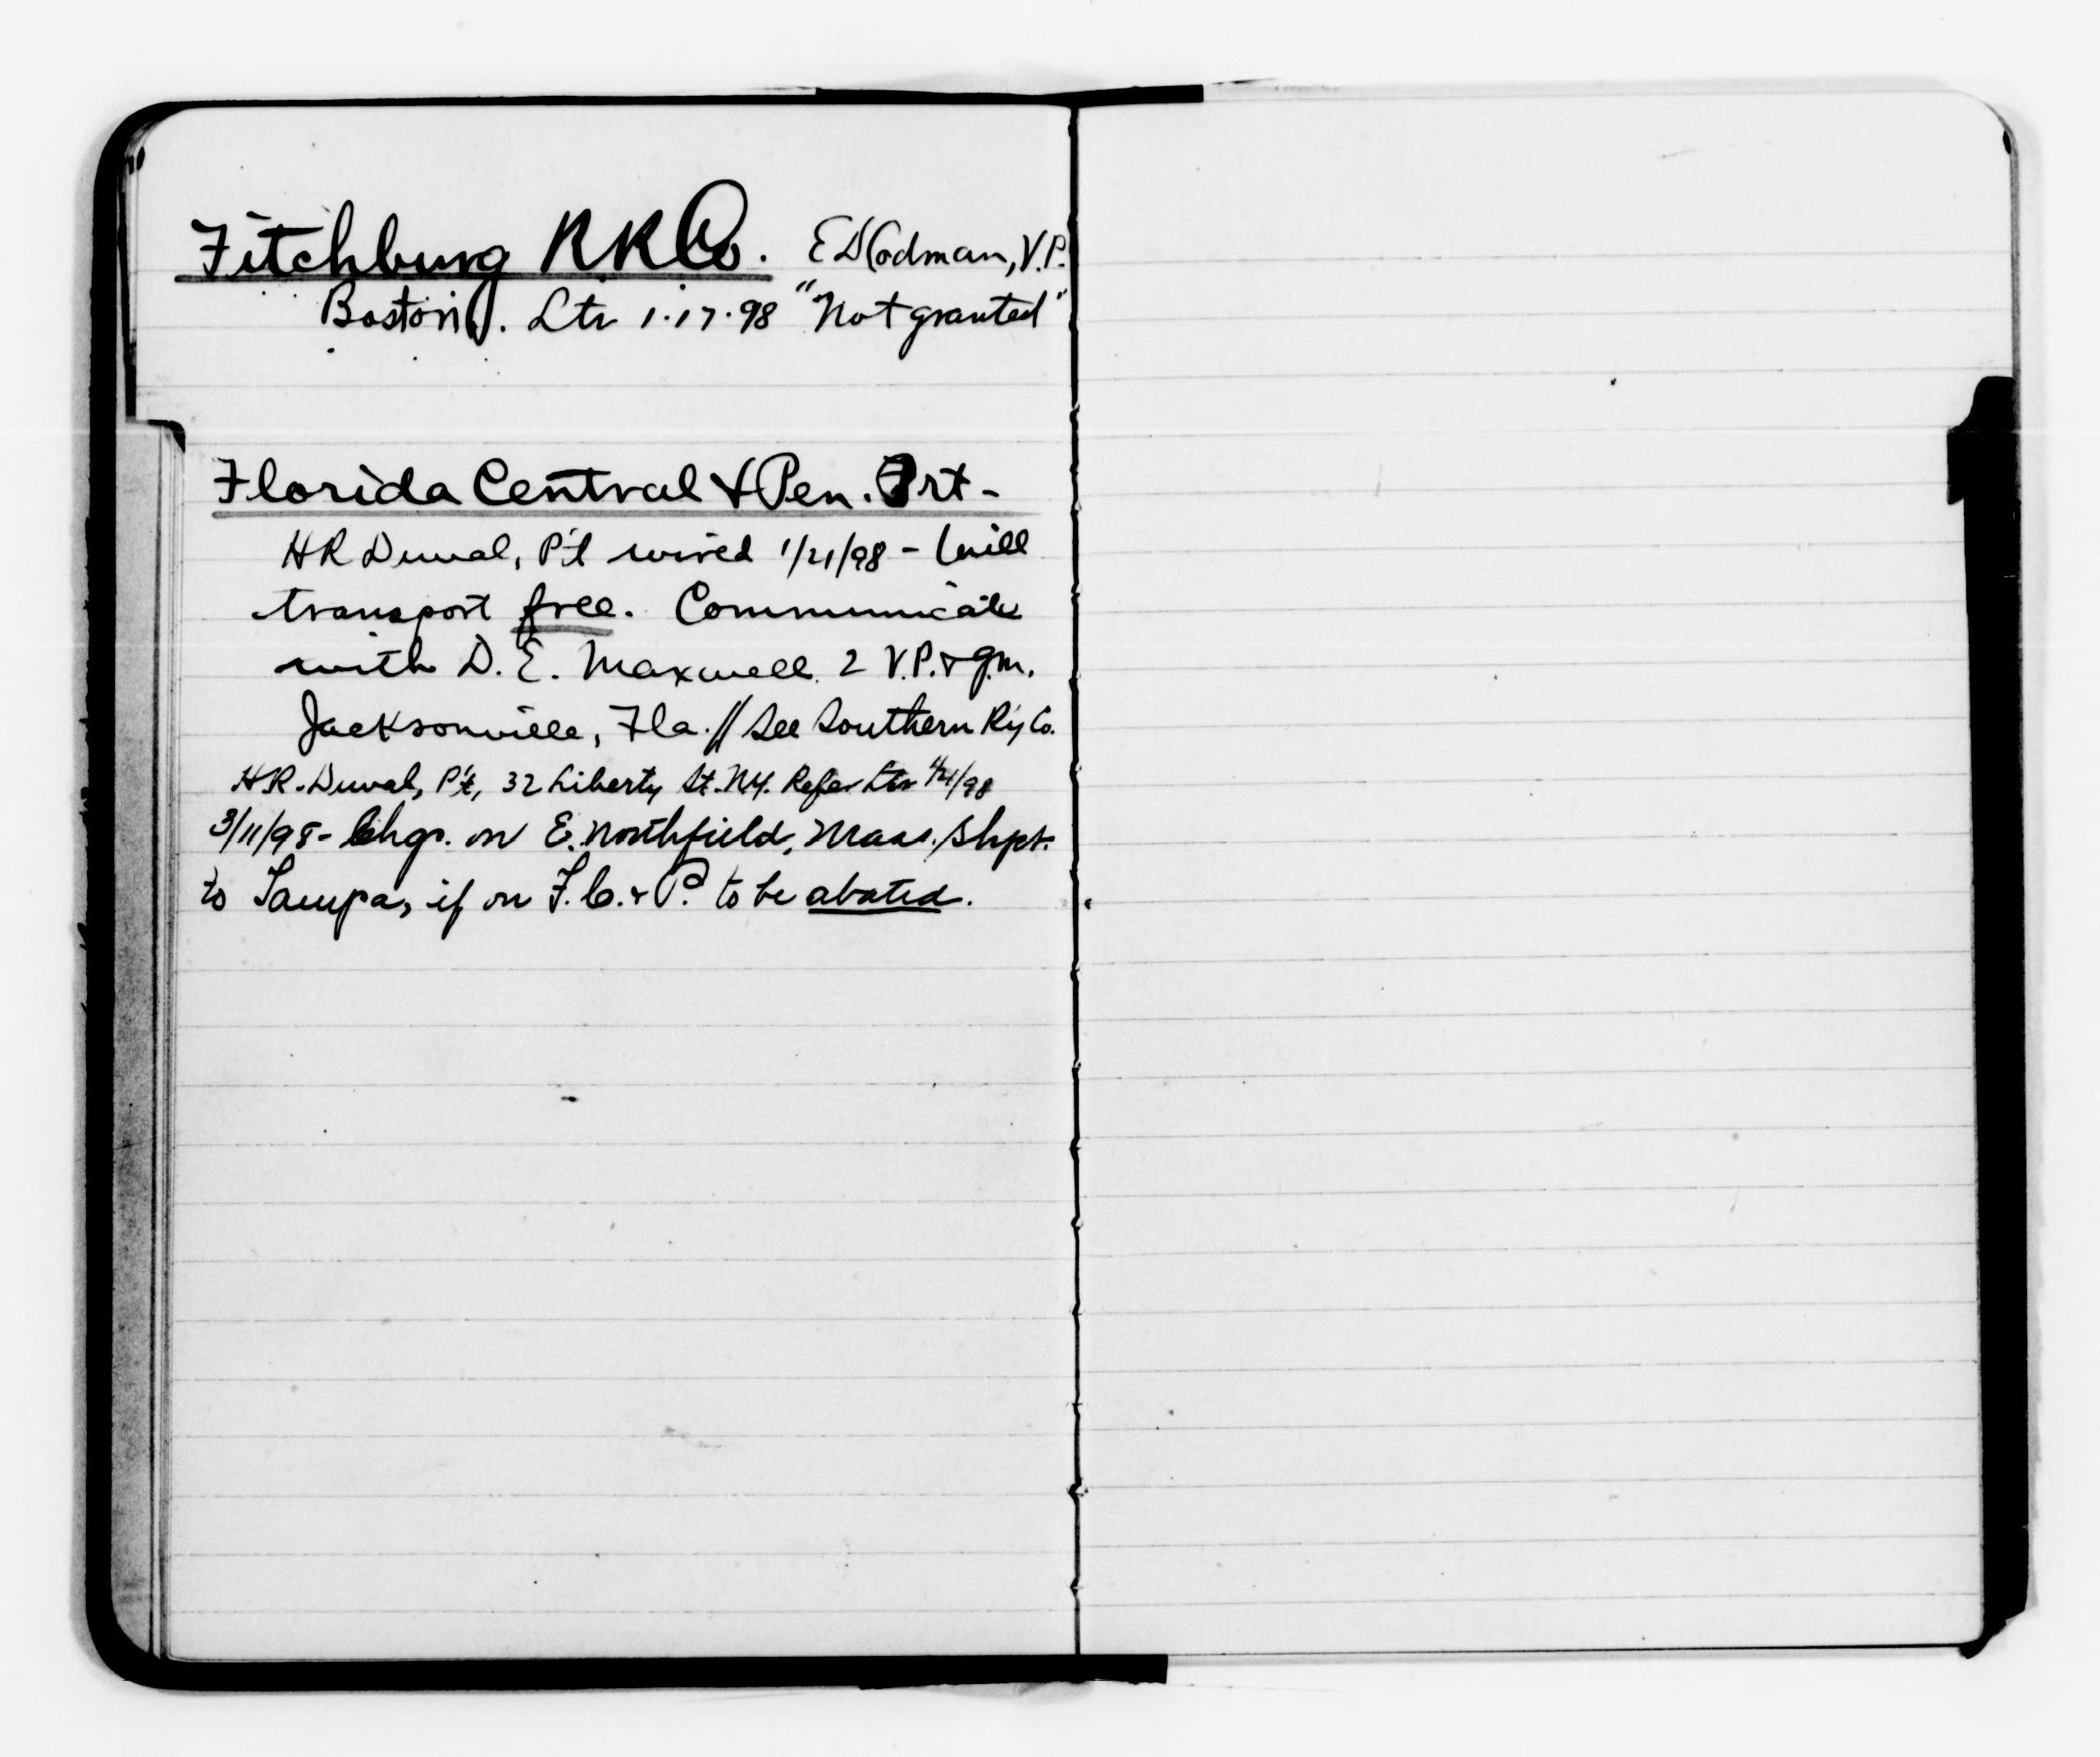 Fitchburg RR Co. E D Codman, V.P.
Boston. Ltr 1.17.98 "Not granted"
Florida Central & Pen. Frt-
HR Duval, P't wired 1/21/98 - Will
transport free. Communicate
with D. E. Maxwell 2 V.P. & G.M.
Jacksonville, Fla. // See Southern Ry Co.
HR. Duval, P't, 32 Liberty St. N.Y. Refer Ltr 1/21/98
3/11/98 - Chgs. on E. Northfield, Mass. Shpt.
to Tampa, if on F.C. & P. to be abated.